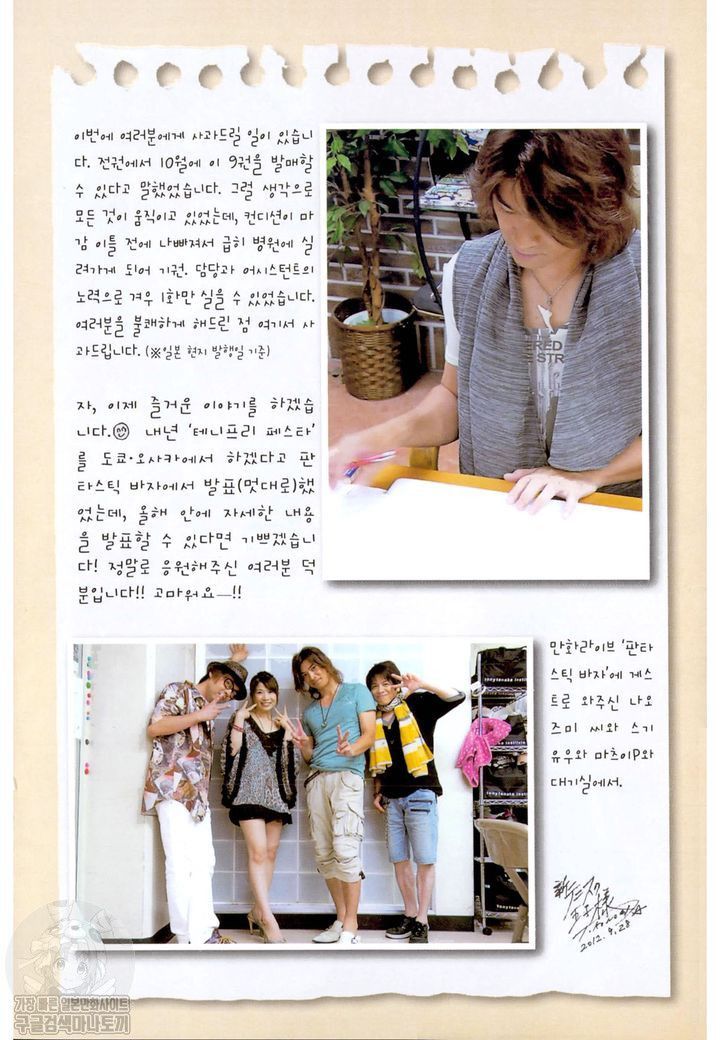 이번에 여러분에게 사과드릴 일이 있습니
다. 전권에서 10월에 이 9권을 발매할
수 있다고 말했었습니다. 그럴 생각으로
모든 것이 움직이고 있었는데, 컨디션이 마
감 이틀 전에 나빠져서 급히 병원에 실
려가게 되어 기권. 담당과 어시스턴트의
노력으로 겨우 1화만 실을 수 있었습니다.
여러분을 불쾌하게 해드린 점 여기서 사
과드립니다. (※일본 현지 발행일 기준)
자, 이제 즐거운 이야기를 하겠습
니다. 내년 '테니프리 페스타'
를 도쿄·오사카에서 하겠다고 판
타스틱 바자에서 발표(멋대로)했
었는데, 올해 안에 자세한 내용
을 발표할 수 있다면 기쁘겠습니
다! 정말로 응원해주신 여러분 덕
분입니다!! 고마워요—!!
만화라이브 '판타
스틱 바자'에 게스
트로 와주신 나오
즈미 씨와 스기
유우와 마츠이P와
대기실에서.
新テニスの
王子様
2012. 9. 28
가장 빠른 일본만화사이트
구글검색마나토끼